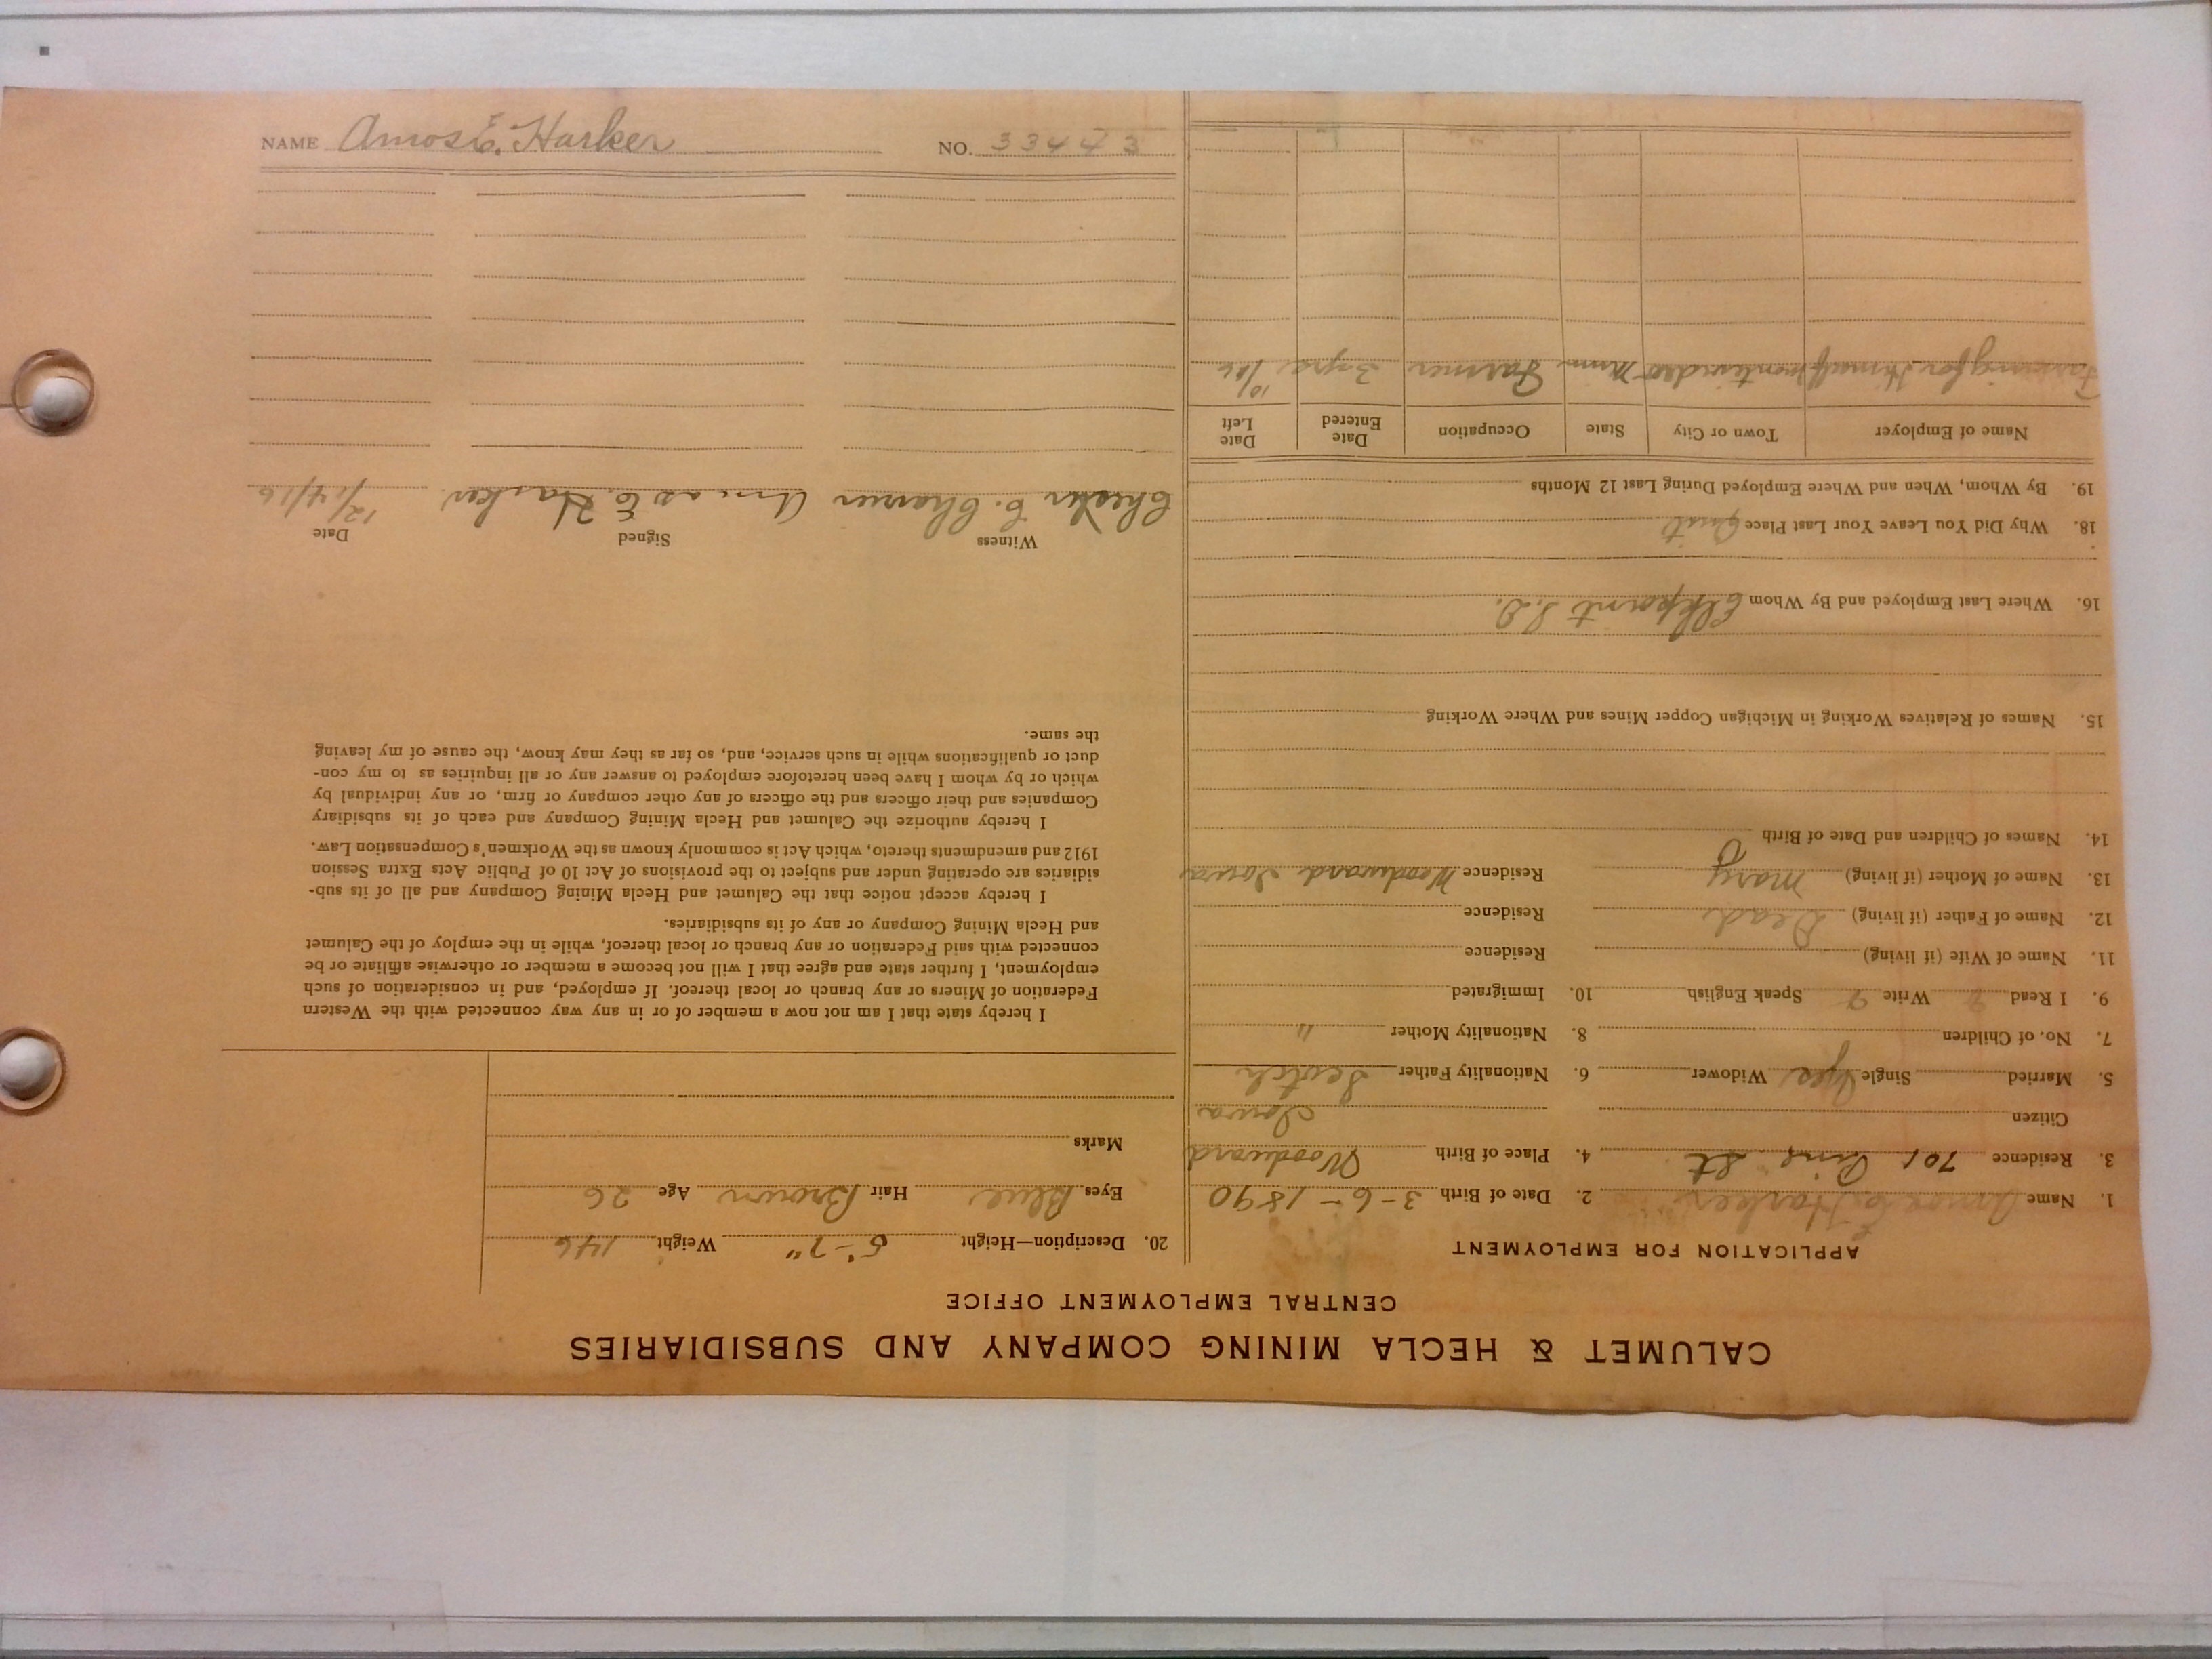 NAME Amos E. Harker NO. 33443
CALUMET & HECLA MINING COMPANY AND SUBSIDIARIES
CENTRAL EMPLOYMENT OFFICE
APPLICATION FOR EMPLOYMENT
1. Name Amos E. Harker 2. Date of Birth 3-6-1890
3. Residence 701 Pine St 4. Place of Birth Woodward
Citizen Iowa
5. Married Single Yes Widower 6. Nationality Father Scotch
7. No. of Children 8. Nationality Mother "
9. I Read Write Speak English 10. Immigrated
11. Name of Wife (if living) Residence
12. Name of Father (if living) Dead Residence
13. Name of Mother (if living) Mary Residence Woodward Iowa
14. Names of Children and Date of Birth
15. Names of Relatives Working in Michigan Copper Mines and Where Working
16. Where Last Employed and By Whom Elkpoint S.D.
18. Why Did You Leave Your Last Place Quit
19. By Whom, When and Where Employed During Last 12 Months
Name of Employer Town or City State Occupation Date Entered Date Left
Farming for Himself Montevideo Minn Farmer 3 yrs 10/16
20. Description—Height 5'-7" Weight 146
Eyes Blue Hair Brown Age 26
Marks
I hereby state that I am not now a member of or in any way connected with the Western
Federation of Miners or any branch or local thereof. If employed, and in consideration of such
employment, I further state and agree that I will not become a member or otherwise affiliate or be
connected with said Federation or any branch or local thereof, while in the employ of the Calumet
and Hecla Mining Company or any of its subsidiaries.
I hereby accept notice that the Calumet and Hecla Mining Company and all of its sub-
sidiaries are operating under and subject to the provisions of Act 10 of Public Acts Extra Session
1912 and amendments thereto, which Act is commonly known as the Workmen's Compensation Law.
I hereby authorize the Calumet and Hecla Mining Company and each of its subsidiary
Companies and their officers and the officers of any other company or firm, or any individual by
which or by whom I have been heretofore employed to answer any or all inquiries as to my con-
duct or qualifications while in such service, and, so far as they may know, the cause of my leaving
the same.
Witness Signed Date
C. Amos E. Harker 12/14/16